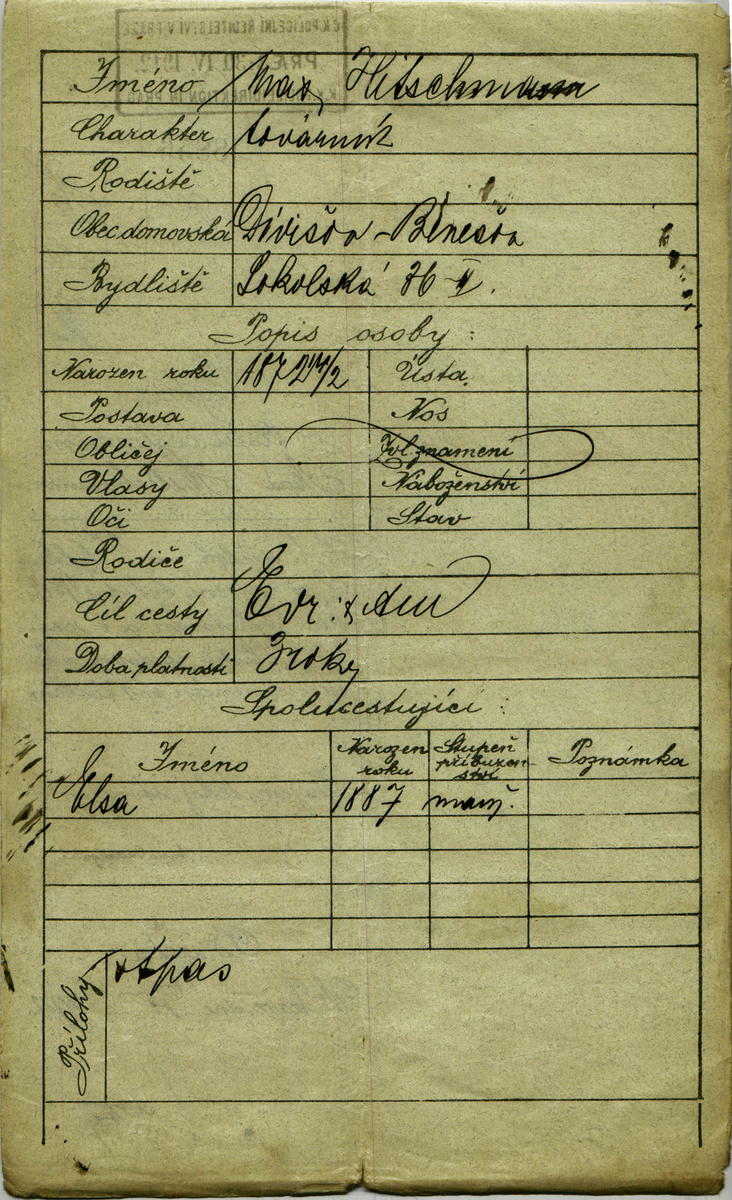 C.K. POLICEJNÍ ŘEDITELSTVÍ V PRAZE
30. IV. 1912
Jméno Max Hitschmann
Charaktér továrník
Rodiště
Obec domovská Divišov - Benešov
Bydliště Sokolská 36 II.
Popis osoby :
Narozen roku 1872 Ústa
Postava Nos
Obličej Zvl. znamení
Vlasy Náboženství
Oči Stav
Rodiče
Cíl cesty Evr. Am
Doba platnosti 3 roky
Spolucestující :
Jméno Narozen roku Stupeň příbuzenství Poznámka
Elsa 1887 manž.
Přílohy pas